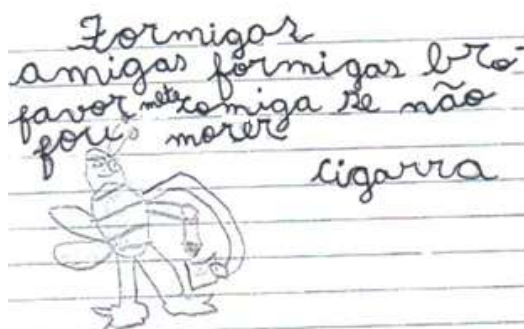 Formigas
amigas formigas bro
favor mete comiga se não
fou morer
cigarra